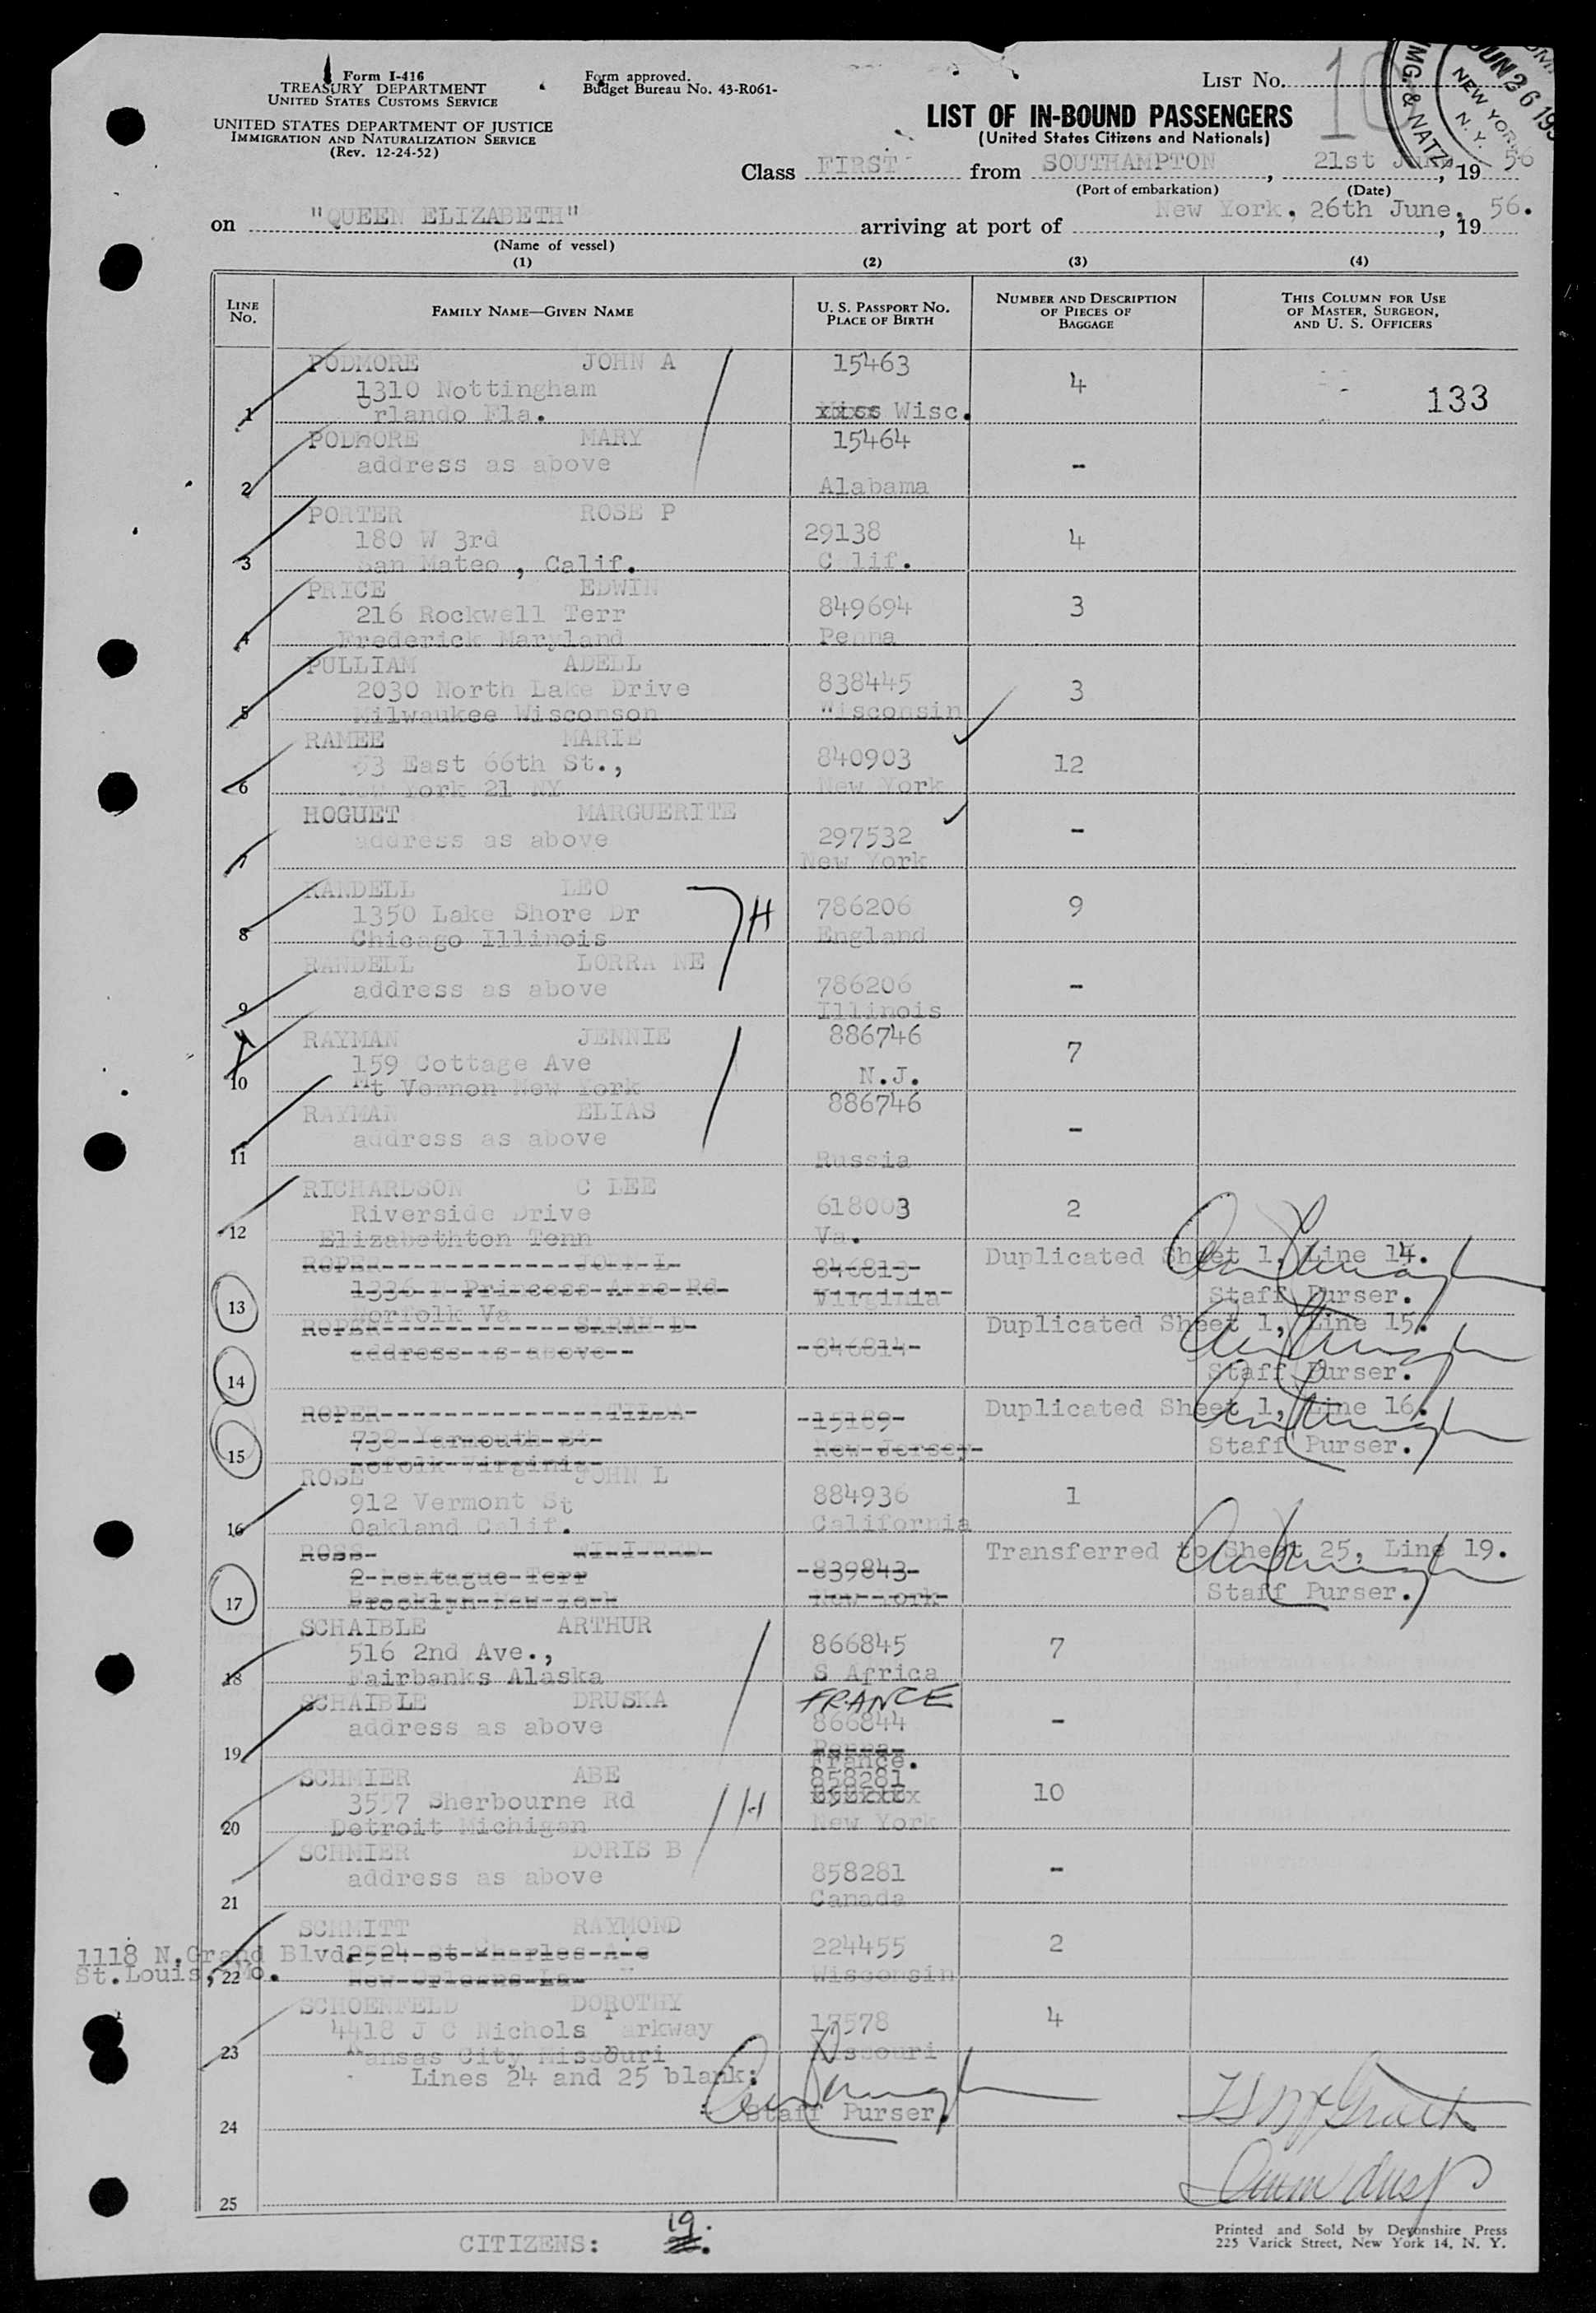 Form I-416
TREASURY DEPARTMENT
UNITED STATES CUSTOMS SERVICE
UNITED STATES DEPARTMENT OF JUSTICE
IMMIGRATION AND NATURALIZATION SERVICE
(Rev. 12-24-52)
Form approved.
Budget Bureau No. 43-R061-
LIST NO. 10
IMG. & NATZ
JUN 26 195
NEW YORK
N. Y.
LIST OF IN-BOUND PASSENGERS
(United States Citizens and Nationals)
Class FIRST from SOUTHAMPTON, 21st June, 19 56
(Port of embarkation) (Date)
on "QUEEN ELIZABETH" arriving at port of New York, 26th June, 19 56.
(Name of vessel)
(1) (2) (3) (4)
LINE NO. FAMILY NAME—GIVEN NAME U. S. PASSPORT NO. PLACE OF BIRTH NUMBER AND DESCRIPTION OF PIECES OF BAGGAGE THIS COLUMN FOR USE OF MASTER, SURGEON, AND U. S. OFFICERS
PODMORE JOHN A 15463
1310 Nottingham 4 133
1 Orlando Fla. Wisc.
PODMORE MARY 15464
address as above -
2 Alabama
PORTER ROSE P
180 W 3rd 29138 4
3 San Mateo , Calif. C lif.
PRICE EDWIN
216 Rockwell Terr 849694 3
4 Frederick Maryland Penna
PULLIAM ADELL
2030 North Lake Drive 838445 3
5 Milwaukee Wisconson Wisconsin
RAMEE MARIE
53 East 66th St., 840903 12
6 New York 21 NY New York
HOGUET MARGUERITE
address as above 297532 -
7 New York
RANDELL LEO
1350 Lake Shore Dr H 786206 9
8 Chicago Illinois England
RANDELL LORRA NE
address as above 786206 -
9 Illinois
RAYMAN JENNIE 886746
159 Cottage Ave 7
10 Mt Vernon New York N.J.
RAYMAN ELIAS 886746
address as above -
11 Russia
RICHARDSON C LEE
Riverside Drive 618003 2
12 Elizabethton Tenn Va.
ROPER JOHN L 846813 Duplicated Sheet 1, Line 14.
1336 Princess Anne Rd Virginia Staff Purser.
13 Norfolk Va
ROPER SARAH D Duplicated Sheet 1, Line 15.
address as above 846814 Staff Purser.
14
ROPER TILDA 15189 Duplicated Sheet 1, Line 16.
738 Yarmouth St New Jersey Staff Purser.
15 Nofolk Virginia
ROSE JOHN L
912 Vermont St 884936 1
16 Oakland Calif. California
ROSS Transferred to Sheet 25, Line 19.
2 Montague Terr 839843 Staff Purser.
17 Brooklyn New York New York
SCHAIBLE ARTHUR
516 2nd Ave., 866845 7
18 Fairbanks Alaska S Africa
SCHAIBLE DRUSKA FRANCE
address as above 866844 -
19 Penna
France.
SCHMIER ABE 858281
3557 Sherbourne Rd H 10
20 Detroit Michigan New York
SCHMIER DORIS B
address as above 858281 -
21 Canada
SCHMITT RAYMOND
1118 N.Grand Blvd. 2524 St Charles Ave 224455 2
St.Louis, Mo. 22 New Orleans La Wisconsin
SCHOENFELD DOROTHY
4418 J C Nichols Parkway 17578 4
23 Kansas City Missouri Missouri
Lines 24 and 25 blank:
: Staff Purser.
24
25
CITIZENS: 19.
Printed and Sold by Devonshire Press
225 Varick Street, New York 14, N. Y.